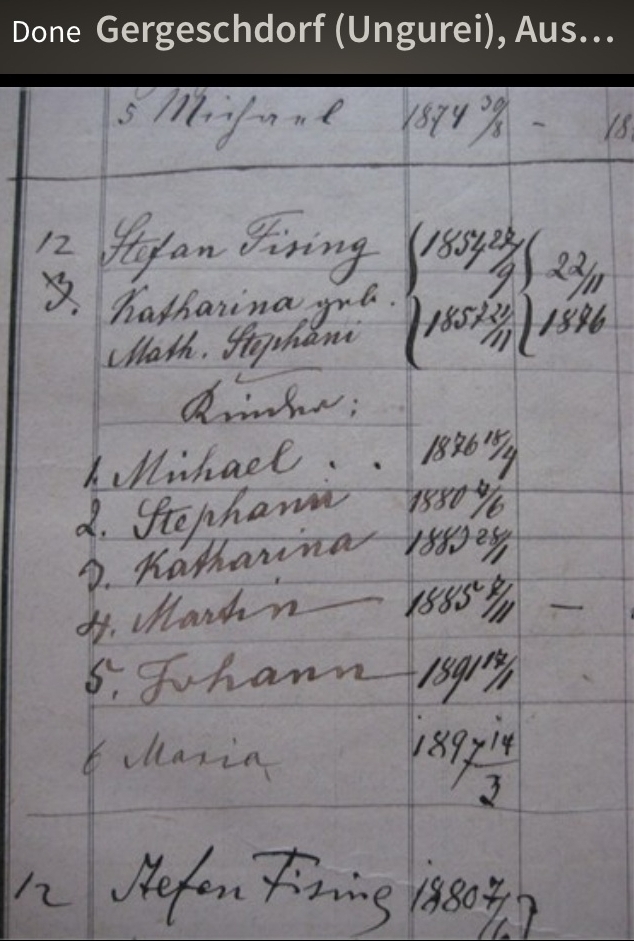 Done Gergeschdorf (Ungurei), Aus...
5 Michael 1874 30/8 - 18
12 Stefan Fising 1854 27/9 22/11
3. Katharina geb. 1857 21/11 1876
Math. Stephani
Kinder:
1. Michael . . 1876 18/4
2. Stephani 1880 7/6
3. Katharina 1883 28/1
4. Martin 1885 7/11 —
5. Johann 1891 17/1
6 Maria 1897 14/3
12 Stefan Fising 1880 7/6